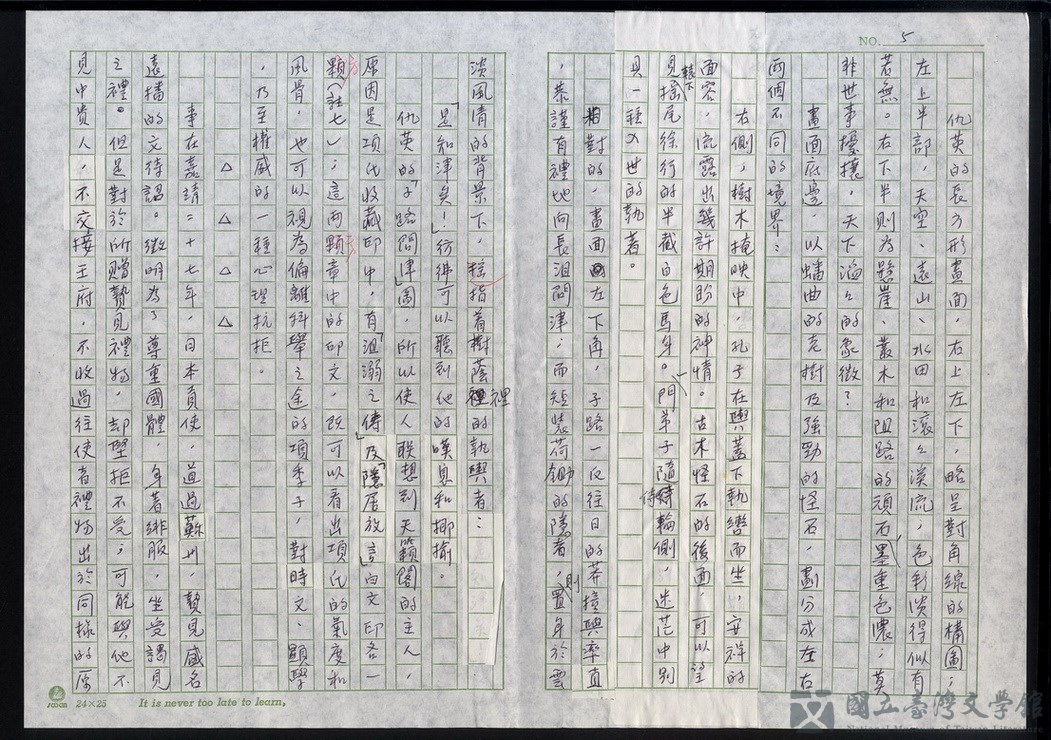 NO. 5
仇英的長方形畫面，右上左下，略呈對角線的構圖；
左上半部，天空、遠山、水田和滾滾溪流，色彩淡得似有
若無。右下半則為懸崖、叢木和阻路的頑石，墨重色濃；莫
非世事擾攘，天下滔滔的象徵？
畫面底邊，以蟠曲的老樹及強勁的怪石，劃分成左右
兩個不同的境界：
右側，樹木掩映中，孔子在輿蓋下執轡而坐，安祥的
面容，流露出幾許期盼的神情。古木怪石的後面，可以望
見轅下搖尾徐行的半截白色馬身。門弟子隨侍輪側，迷茫中別
具一種入世的執著。
相對的，畫面左下角，子路一反往日的莽撞與率直
，恭謹有禮地向長沮問津；而短裝荷鋤的隱者，則置身於雲
淡風清的背景下，指著樹蔭裡的執輿者：
「是知津矣！」彷彿可以聽到他的嘆息和揶揄。
仇英的「子路問津」圖，所以使人聯想到天籟閣的主人，
原因是項氏收藏印中，有「沮溺之儔」及「隱居放言」白文印各一
方（註七）；這兩方章中的印文，既可以看出項氏的氣度和
風骨，也可以視為倫離科舉之途的項季子，對時文、顯學
，乃至權威的一種心理抗拒。
△ △ △ △
事在嘉靖二十七年，日本貢使，道過蘇州，贄見咸名
遠播的文待詔。徵明為了尊重國體，身著緋服，坐受謁見
之禮。但是對於所贈贄見禮物，却堅拒不受；可能與他不
見中貴人，不交接王府，不收過往使者禮物出於同樣的原
24×25
It is never too late to learn,
國立臺灣文學館
National Museum of Taiwan Literature